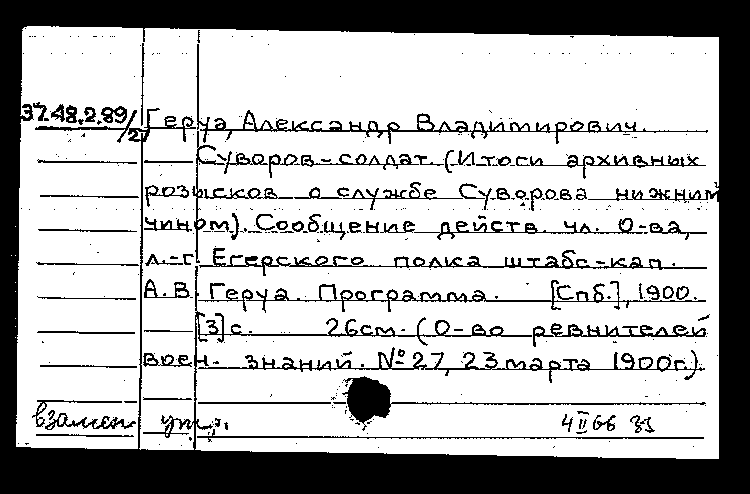 37.48.2.89/2) Геруа, Александр Владимирович.
Суворов-солдат. (Итоги архивных
розысков о службе Суворова нижним
чином). Сообщение действ. чл. О-ва,
л.-г. Егерского полка штабс-кап.
А.В. Геруа. Программа. [Спб.], 1900.
[3]с. 26см. (О-во ревнителей
воен. знаний. №27, 23 марта 1900г.).
взамен утр. 4 II 66